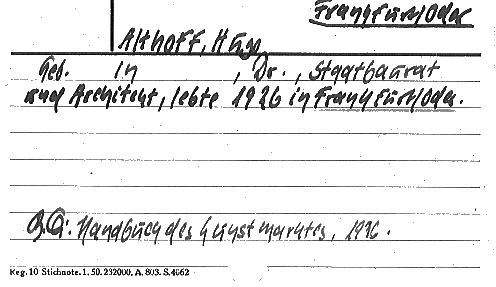 Frankfurt/Oder
Althoff, Hugo
Geb. in , Dr., Staatbaurat
und Architekt, lebte 1926 in Frankfurt/Oder.
B.Q: Handbuch des Kunstmarktes, 1926.
Reg. 10 Stichnote. 1. 50. 232000. A. 803. S. 4662